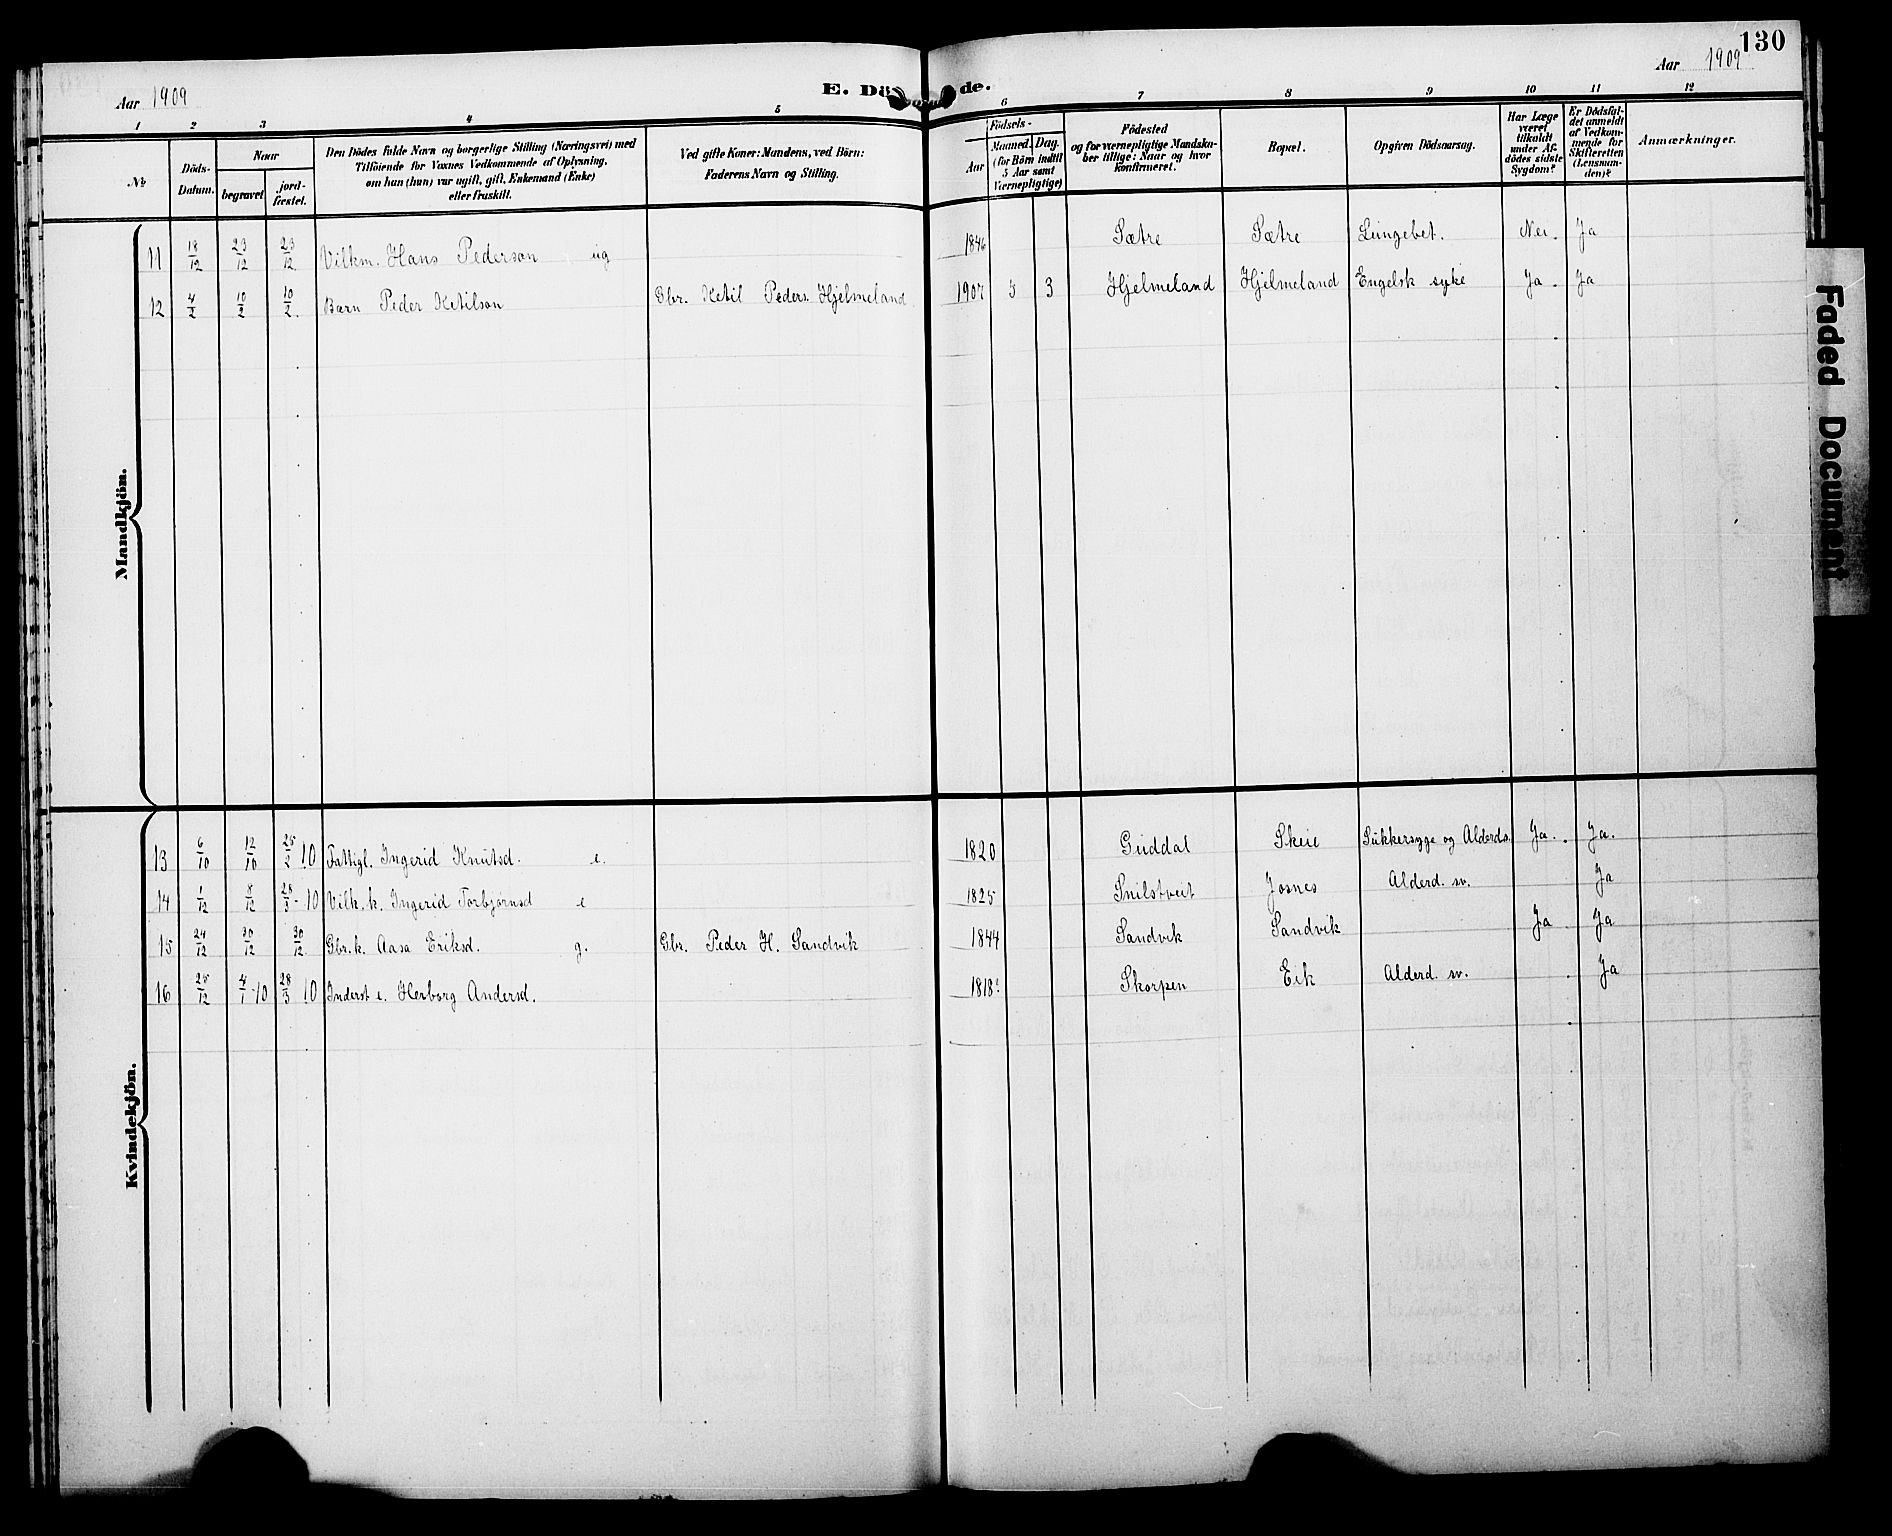 130
Aar 1909
E. Dö de.
Aar 1909
1 2 3 4 5 6 7 8 9 10 11 12
No
Döds-
Datum.
Naar
begravet
jord-
fæstet.
Den Dödes fulde Navn og borgerlige Stilling (Næringsvei) med
Tilföiende for Voxnes Vedkommende af Oplysning,
om han (hun) var ugift, gift, Enkemand (Enke)
eller fraskilt.
Ved gifte Koner: Mandens, ved Börn:
Faderens Navn og Stilling.
Födsels-
Aar
Maaned. Dag.
(for Börn indtil
5 Aar samt
Værnepligtige)
Födested
og for værnepligtige Mandska-
ber tillige: Naar og hvor
konfirmeret.
Bopæl.
Opgiven Dödsaarsag.
Har Læge
været
tilkaldt
under Af-
dödes sidste
Sygdom?
Er Dödsfal-
det anmeldt
af Vedkom-
mende for
Skifteretten
(Lensman-
den)?
Anmærkninger.
Mandkjön.
11 18/12 23/12 23/12 Vilkm. Hans Pederson ug 1846 Sætre Sætre Lungebet. Nei. Ja
12 4/2 10/2 10/2. Barn Peder Ketilson Gbr. Ketil Peders. Hjelmeland 1907 5 3 Hjelmeland Hjelmeland Engelsk syke Ja. Ja
Kvindekjön.
13 6/10 12/10 25/2 10 Fattigl. Ingerid Knutsd. e. 1820 Guddal Skeie Sukkersyge og Alderds. Ja. Ja.
14 1/12 8/12 28/3-10 Vilk.k. Ingerid Torbjørnsd e 1825 Snilstveit Josnes Alderd. sv. Ja
15 24/12 30/12 30/12 Gbr.k. Aasa Eriksd. g. Gbr. Peder H. Sandvik 1844 Sandvik Sandvik Ja Ja
16 25/12 4/1-10 28/3 10 Inderst e. Herborg Andersd. 1818? Skorpen Eik Alderd. sv. Ja
Faded Document